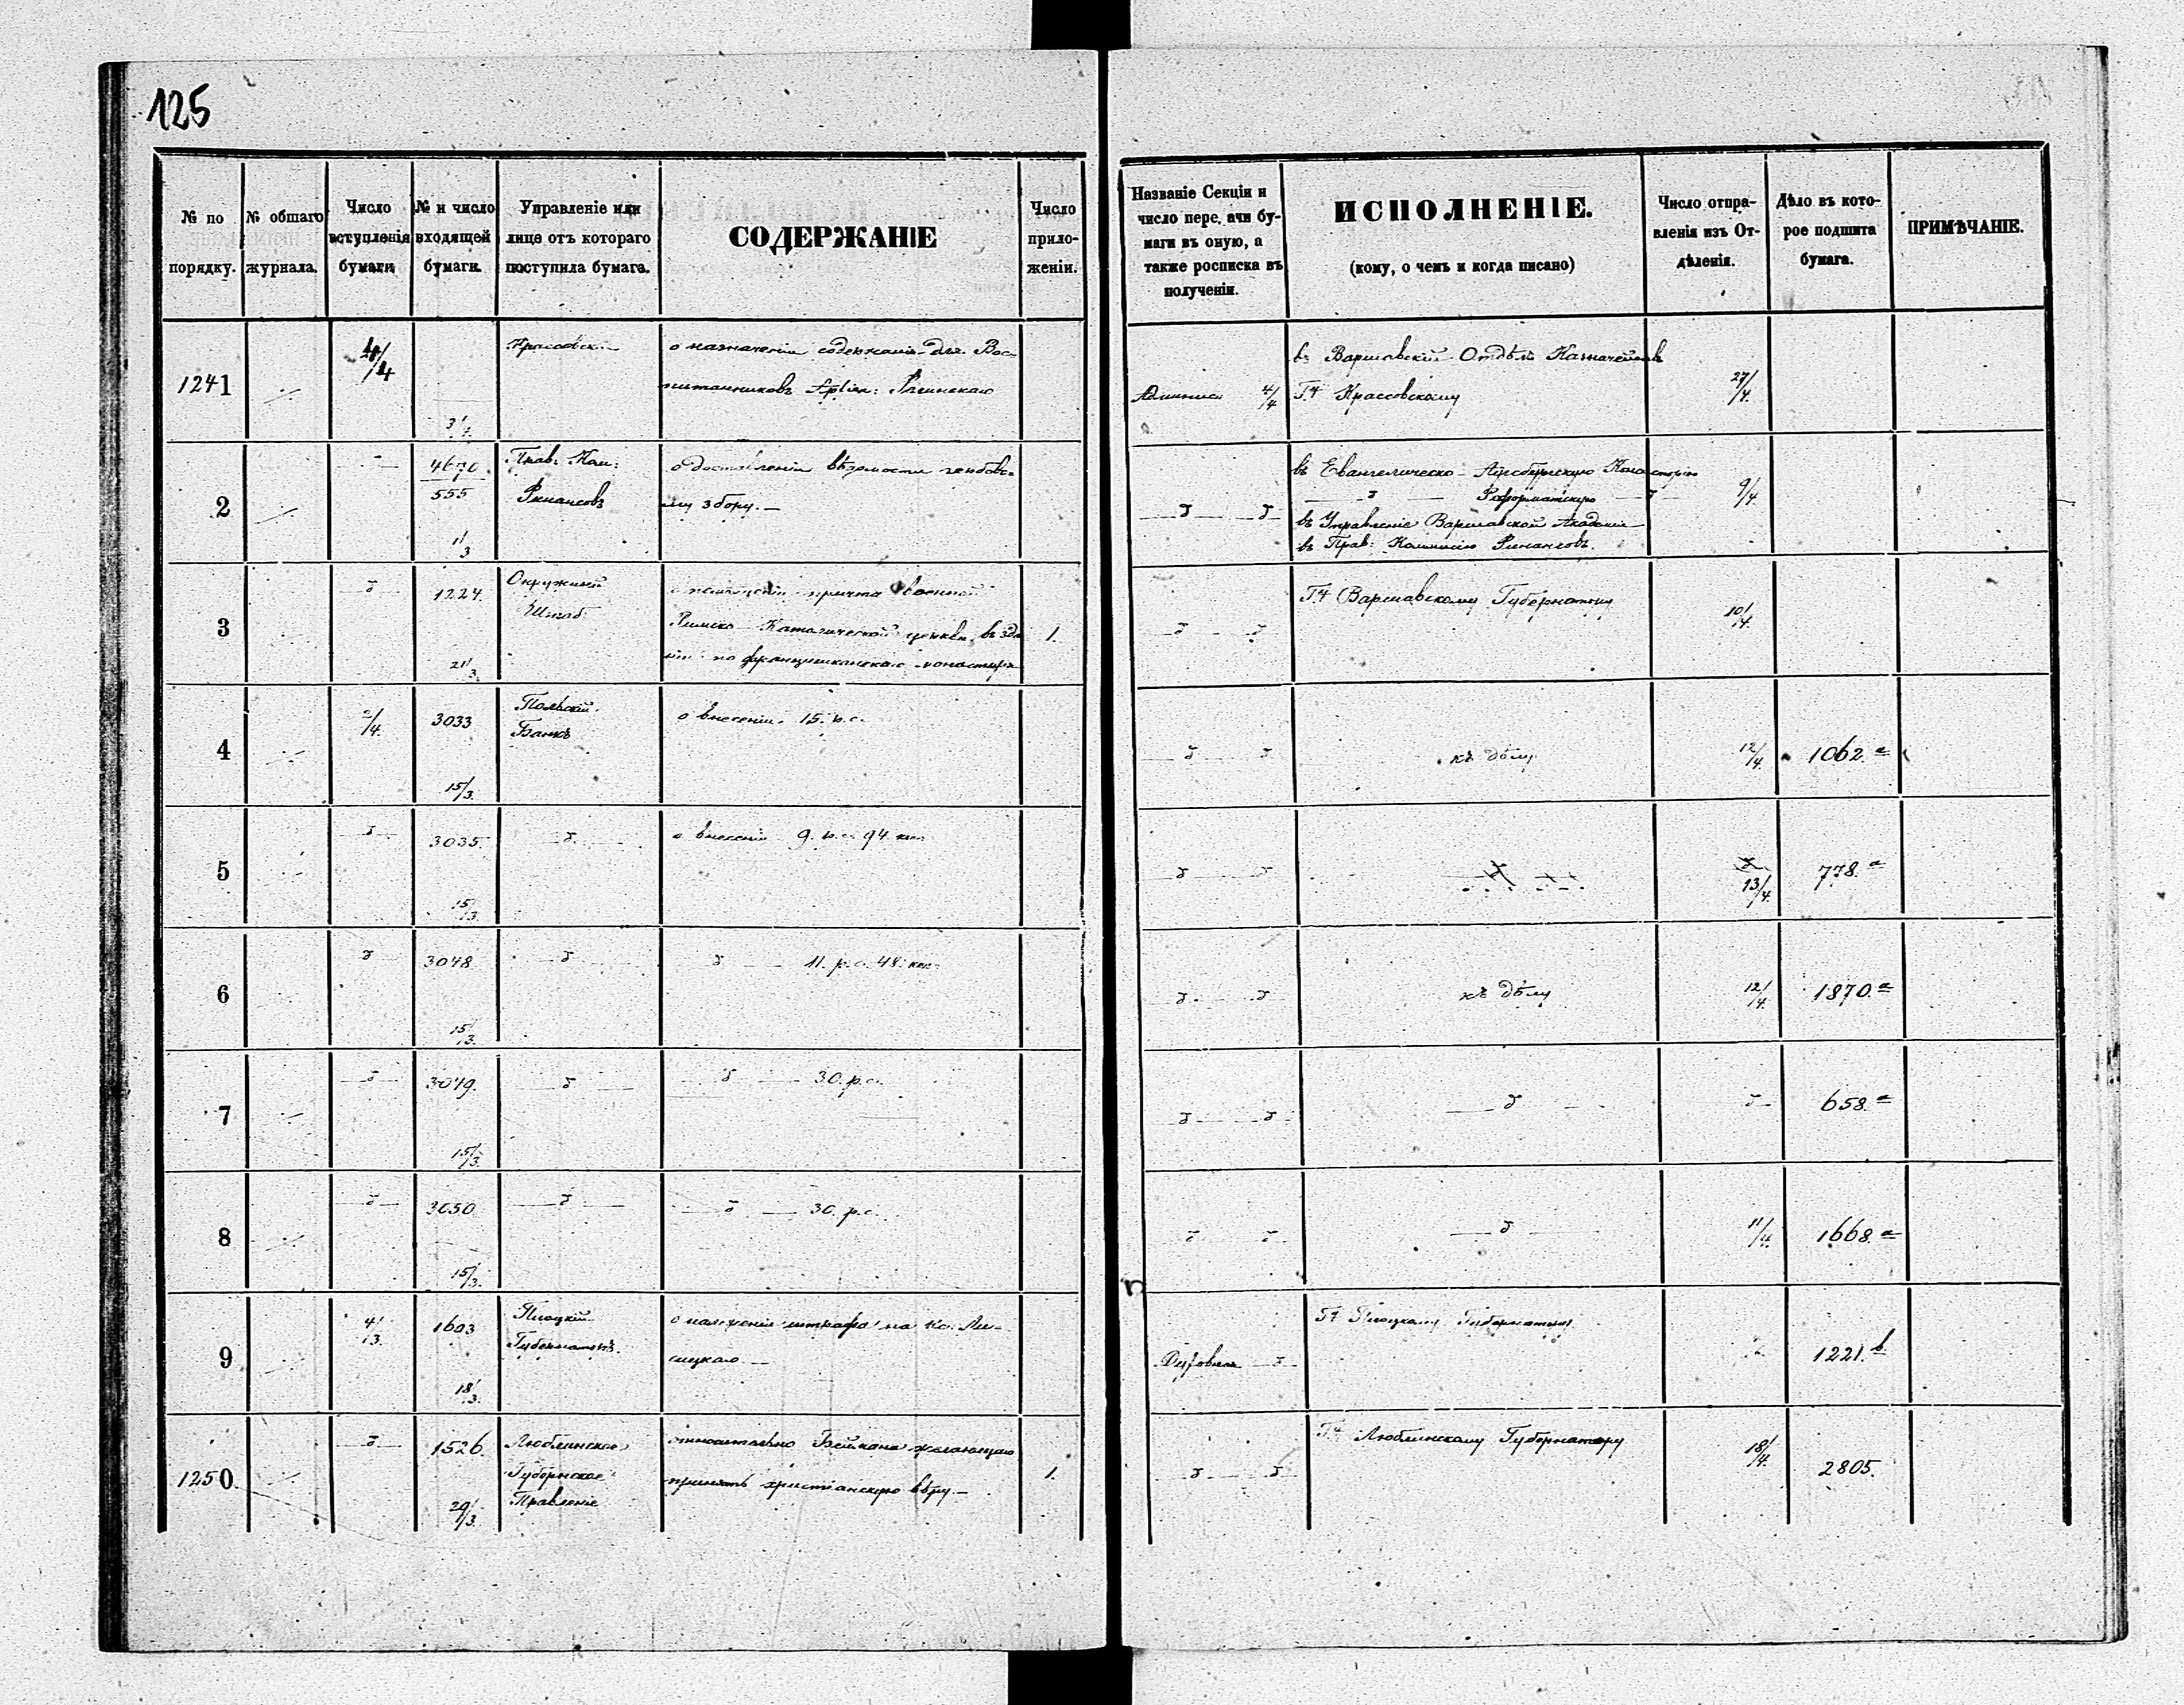 125
№ по порядку.
№ обшаго журнала.
Число вступленія бумаги
№ и число входящей бумаги.
Управленіе или лице отъ котораго поступила бумага.
СОДЕРЖАНІЕ
Число приложеніи.
Названіе Секціи и
число пере, ачи бу-
маги въ оную, а
также росписка въ
полученіи.
ИСПОЛНЕНІЕ.
(кому, о чемъ и когда писано)
Число отпра-
вленія изъ От-
дѣленія.
Дѣло въ кото-
рое подшита
бумага.
ПРИМѢЧАНІЕ.
1241
4/4
3/4
о назначеніи содержанія для Вос-
питанниковъ
4/4
въ Варшавскій Отдѣлъ Казначейства
Гну Крассовскому
27/4.
2
4670
555
11/3
Прав: Ком:
Финансовъ
о доставленіи вѣдомости
сбору.—
въ Евангелическо-Аугсбургскую Консисторію
Реформатскую
въ Управленіе Варшавской Академіи
въ Прав: Коммисію Финансовъ.
9/4.
3
1224.
21/3
Окружный
Штабъ
о помѣщеніи причта военной
Римско-Католической церкви въ зда
ніи по францишканскаго монастыря
1.
Гну Варшавскому Губернатору
10/4.
4
2/4
3033
15/3.
Польскій
Банкъ
о внесеніи 15. р.с.
къ дѣлу
12/4.
1062.а
5
3035.
15/3.
о внесеніи 9. р.с. 94 коп.
13/4
778.а
6
3048.
15/3.
11. р.с. 48. коп.
къ дѣлу
12/4.
1870.а
7
3049.
15/3.
30. р.с.
658.а
8
3050
15/3.
30. р.с.
11/4.
1668.а
9
4/3.
1603
18/3.
Плоцкій
Губернаторъ.
о наложеніи штрафа на Кс. Ли-
сицкаго —
Гну Плоцкому Губернатору
1221.b
1250
1526.
29/3.
Люблинское
Губернское
Правленіе
относительно желающаго
принять христіанскую вѣру.—
1.
Гну Люблинскому Губернатору
18/4.
2805.